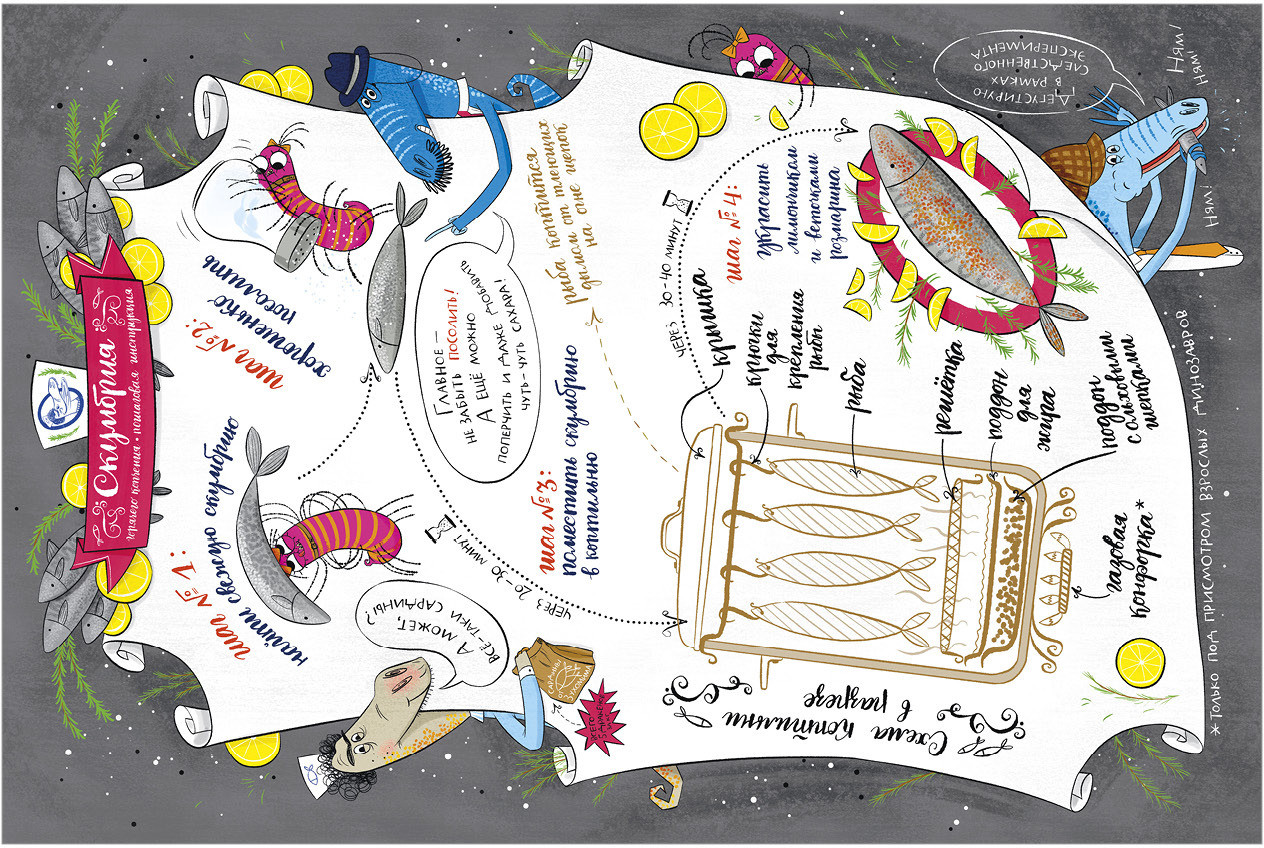 Скумбрия
горячего копчения • пошаговая инструкция
шаг №1:
найти свежую скумбрию
шаг №2:
хорошенько
посолить
А
может,
всё-таки сардины?
Главное –
не забыть посолить!
А ещё можно
поперчить и даже добавить
чуть-чуть сахара!
сардины
от
Зухомими
всего
через 20–30 минут
шаг №3:
поместить скумбрию
в коптильню
рыба коптится
дымом от тлеющих
на огне щепок
через 30–40 минут
шаг №4:
украсить
лимончиком
и веточками
розмарина
Схема коптильни
в разрезе
крышка
крючки
для
крепления
рыбы
рыба
решётка
поддон
для
жира
поддон
с ольховыми
щепками
газовая
конфорка*
Дегустирую
в рамках
следственного
эксперимента
Ням!
Ням!
Ням!
*только под присмотром взрослых динозавров